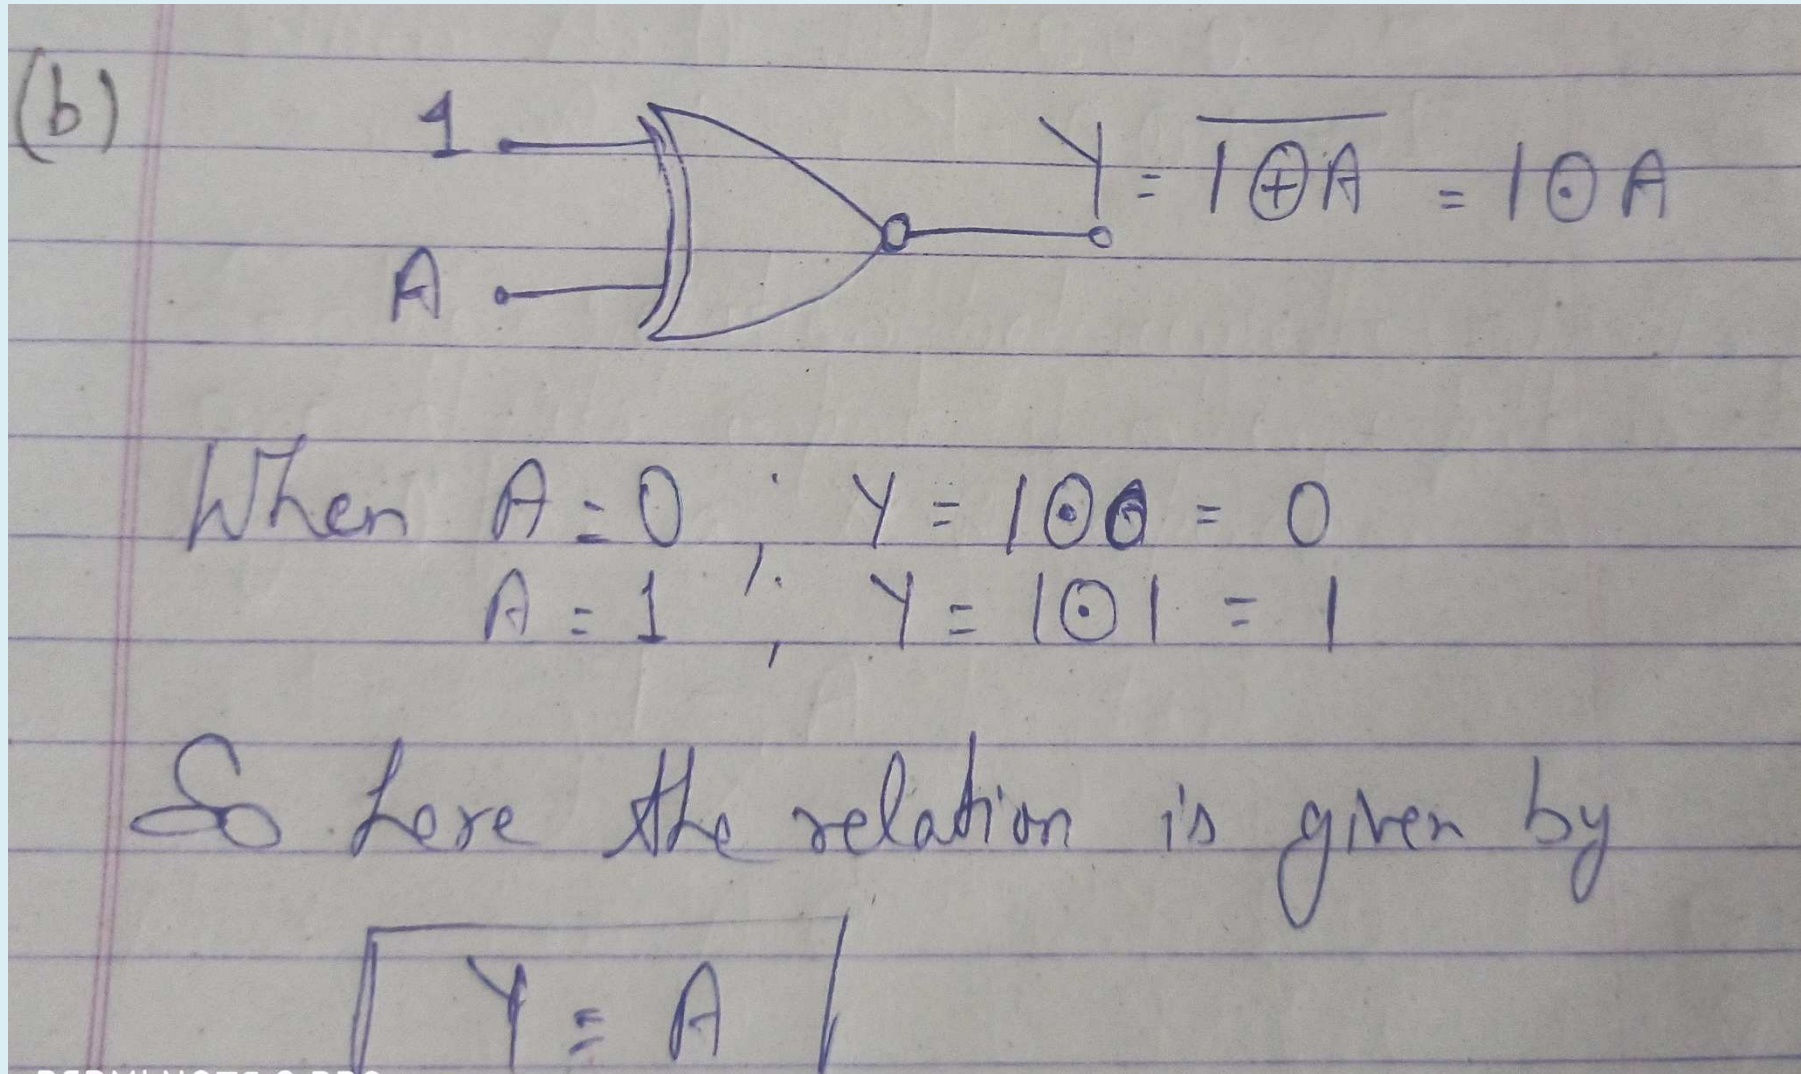 (b)
1
Y = \overline{1⊕A} = 1⊙A
A
When A=0 ; Y = 1⊙0 = 0
A=1 ; Y = 1⊙1 = 1
So here the relation is given by
Y = A